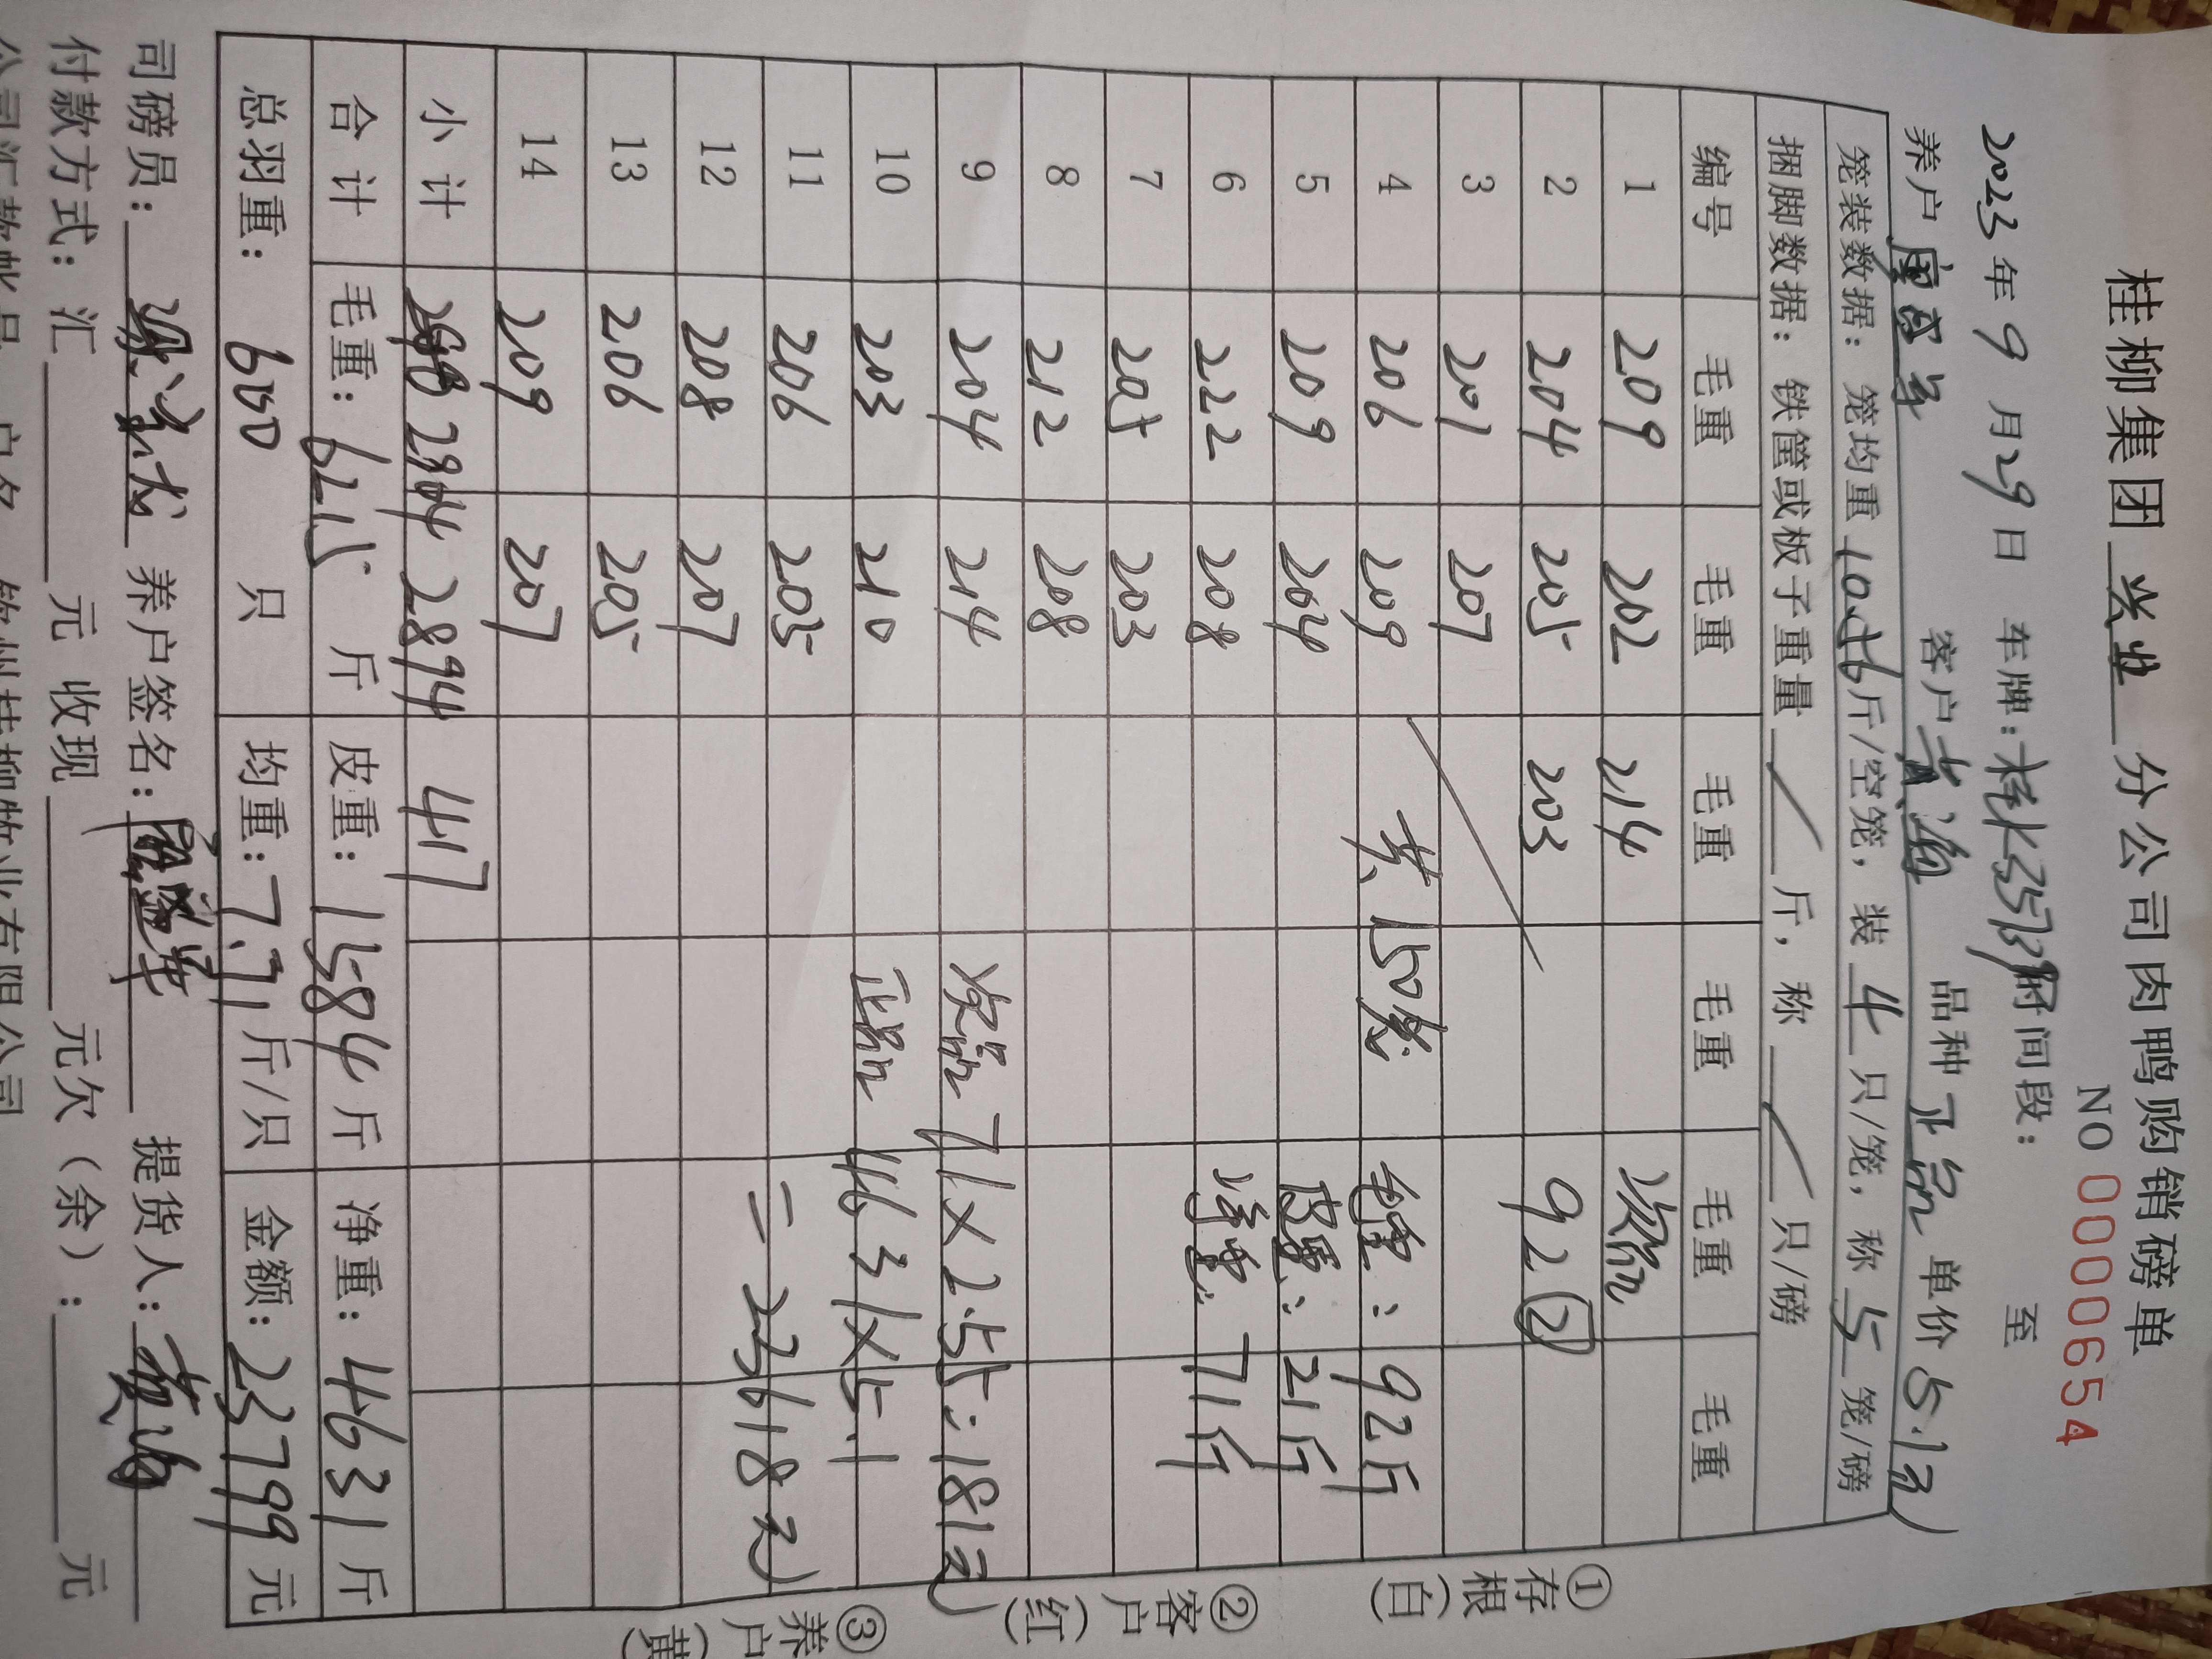 桂柳集团 兴业 分公司肉鸭购销磅单
NO 0000654
2023年9月29日 车牌: 时间段: 至
养户 客户 黄海 品种 正品 单价 5.1元
笼装数据：笼均重 10.56 斤/空笼，装 4 只/笼，称 5 笼/磅
捆脚数据：铁筐或板子重量 / 斤，称 / 只/磅
编号 毛重 毛重 毛重 毛重 毛重 毛重
1 209 202 214 次品
2 204 205 203 92 ②
3 201 207
4 206 209 共150笼 毛重: 92斤
5 209 204 皮重: 21斤
6 222 208 净重: 71斤
7 205 203
8 212 208
9 204 214 次品 71×2.55: 181元
10 203 210 正品 4631×5.1
11 206 205 =23618元
12 208 207
13 206 205
14 209 207
小计 2904 2894 417
合计 毛重: 6215 斤 皮重: 1584 斤 净重: 4631 斤
总羽重: 600 只 均重: 7.71 斤/只 金额: 23799 元
司磅员: 养户签名: 提货人: 黄海
付款方式: 汇 元 收现 元 元欠（余）: 元
公司汇款帐号 户名 钦州桂柳牧业有限公司
①存根（白）
②客户（红）
③养户（黄）